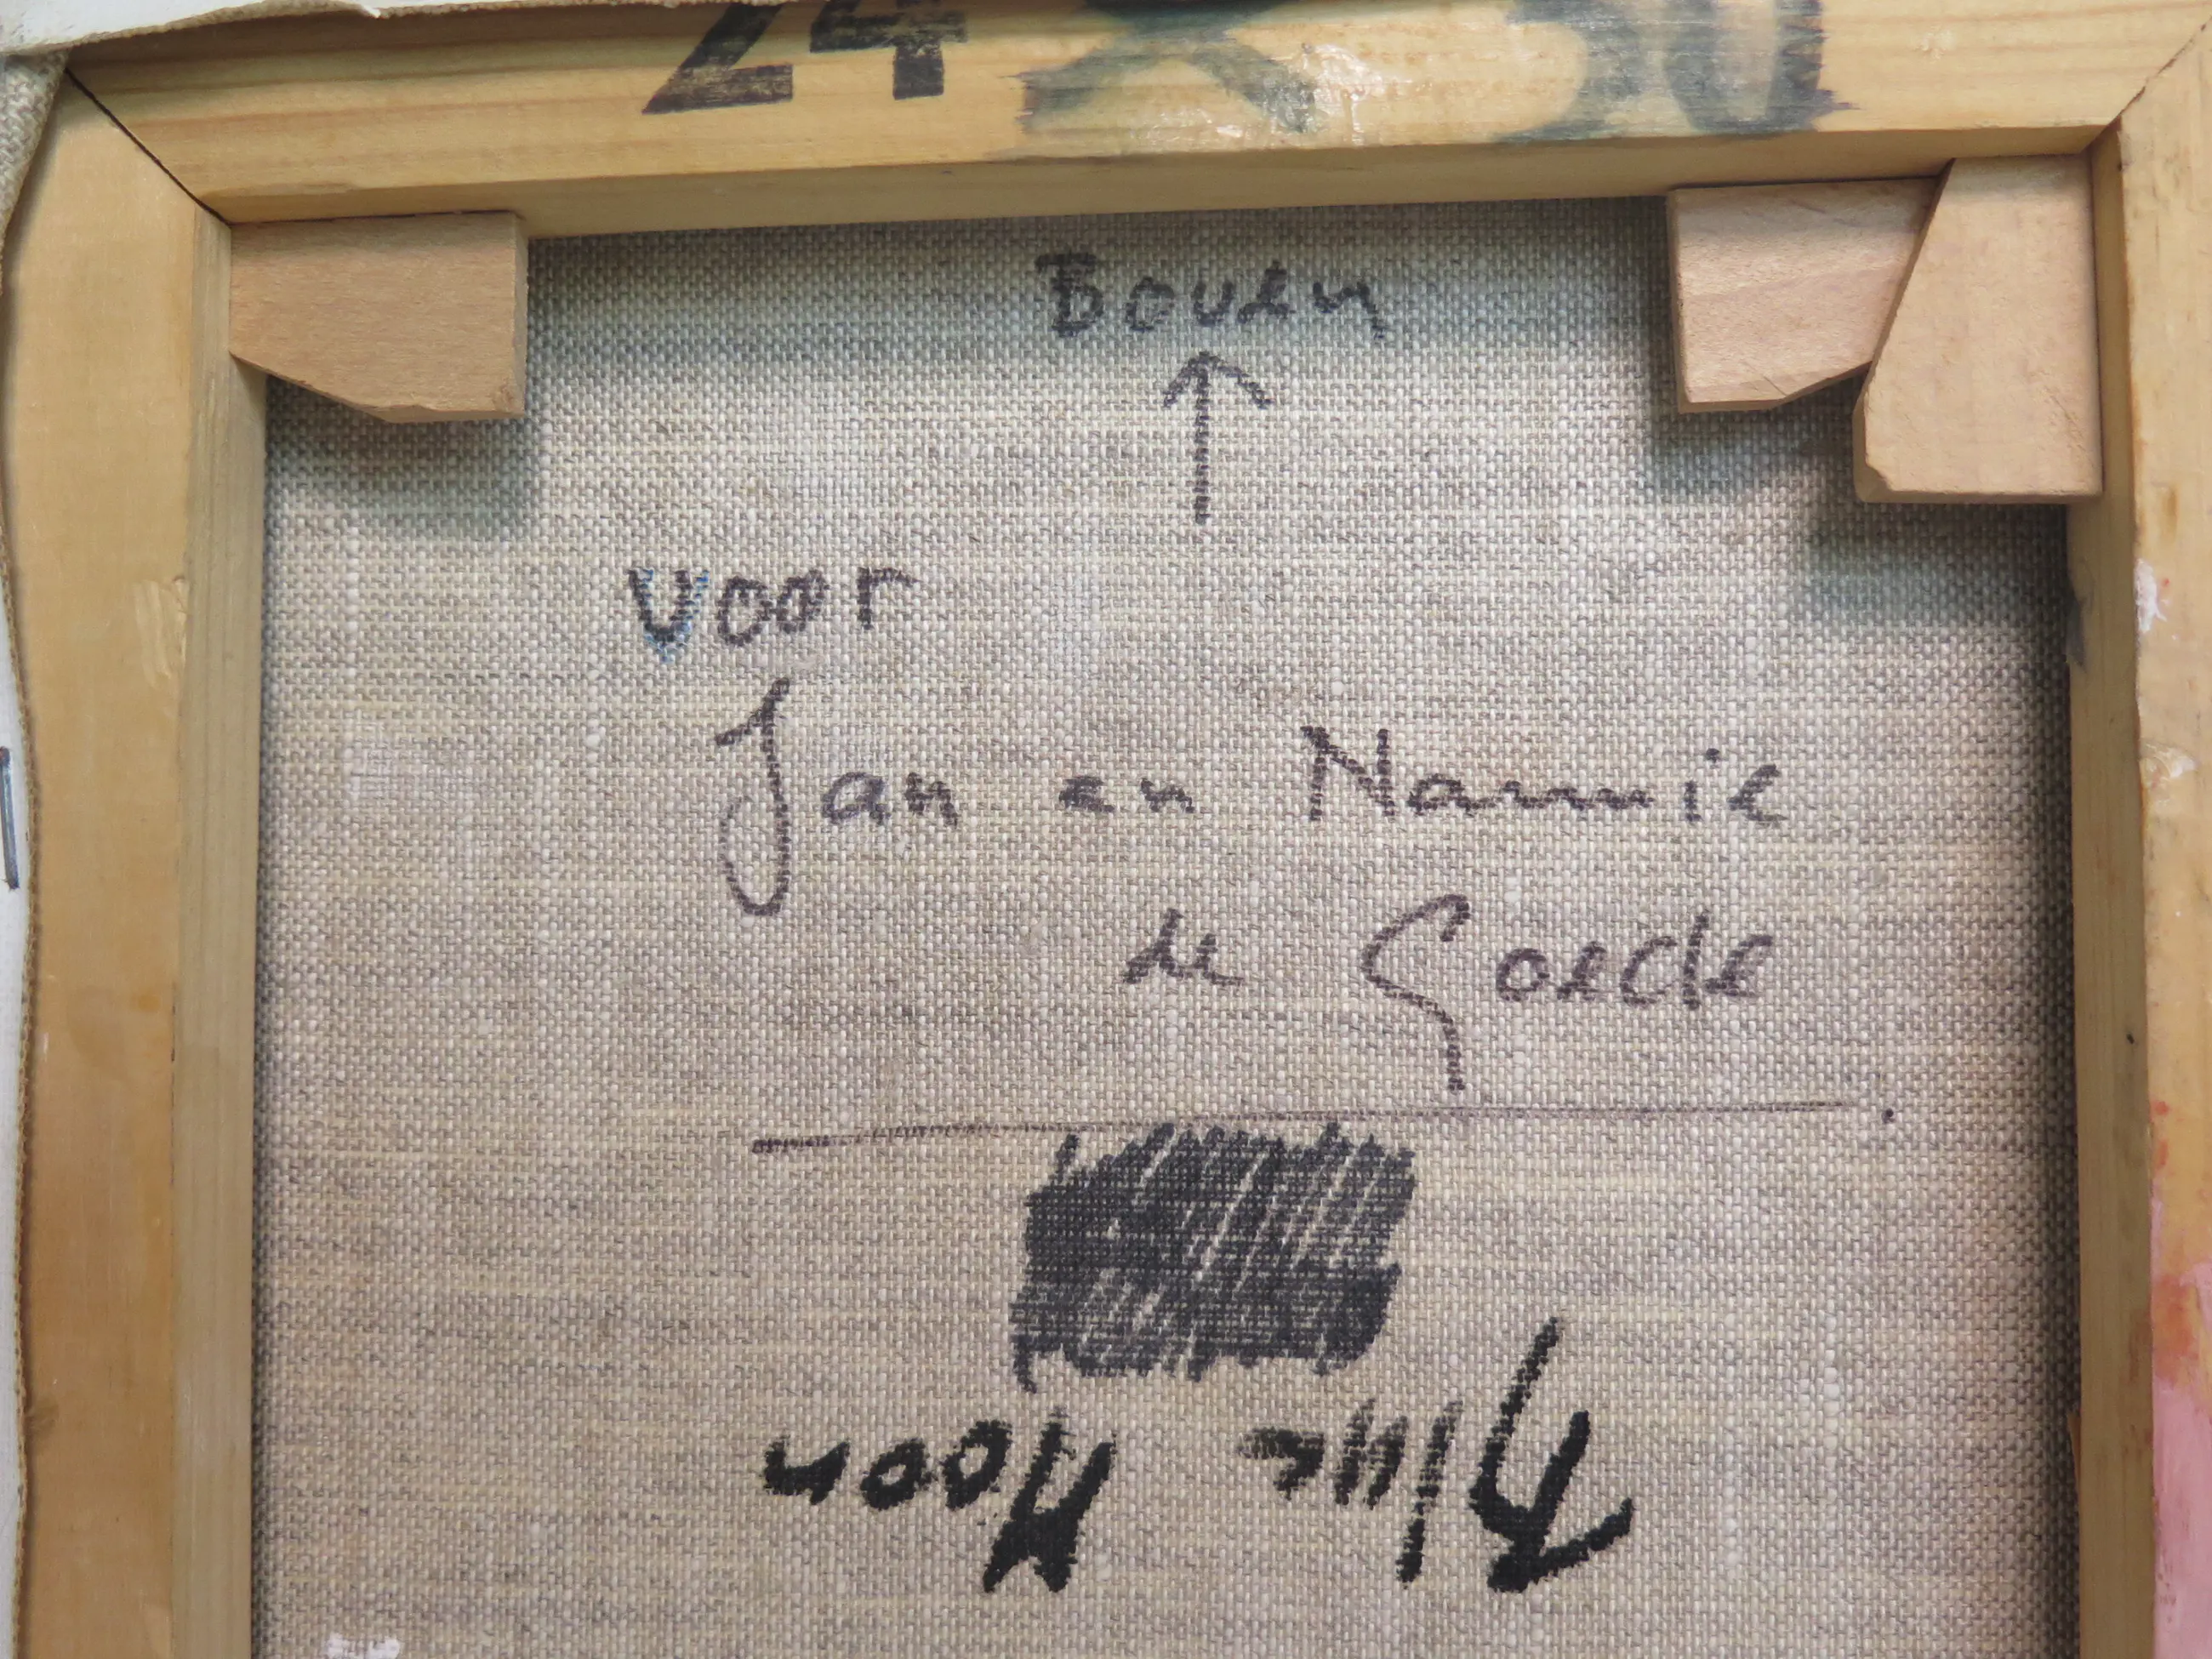 24 X 30
Boven
voor
Jan en Nannie
de Goede
Blue Moon